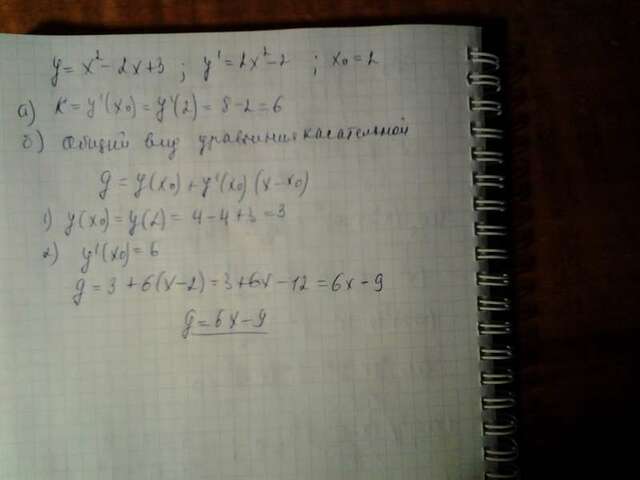 y = x² - 2x + 3 ; y' = 2x² - 2 ; x₀ = 2
а) K = y'(x₀) = y'(2) = 8 - 2 = 6
б) Общий вид уравнения касательной
y = y(x₀) + y'(x₀) (x - x₀)
1) y(x₀) = y(2) = 4 - 4 + 3 = 3
2) y'(x₀) = 6
y = 3 + 6(x - 2) = 3 + 6x - 12 = 6x - 9
y = 6x - 9